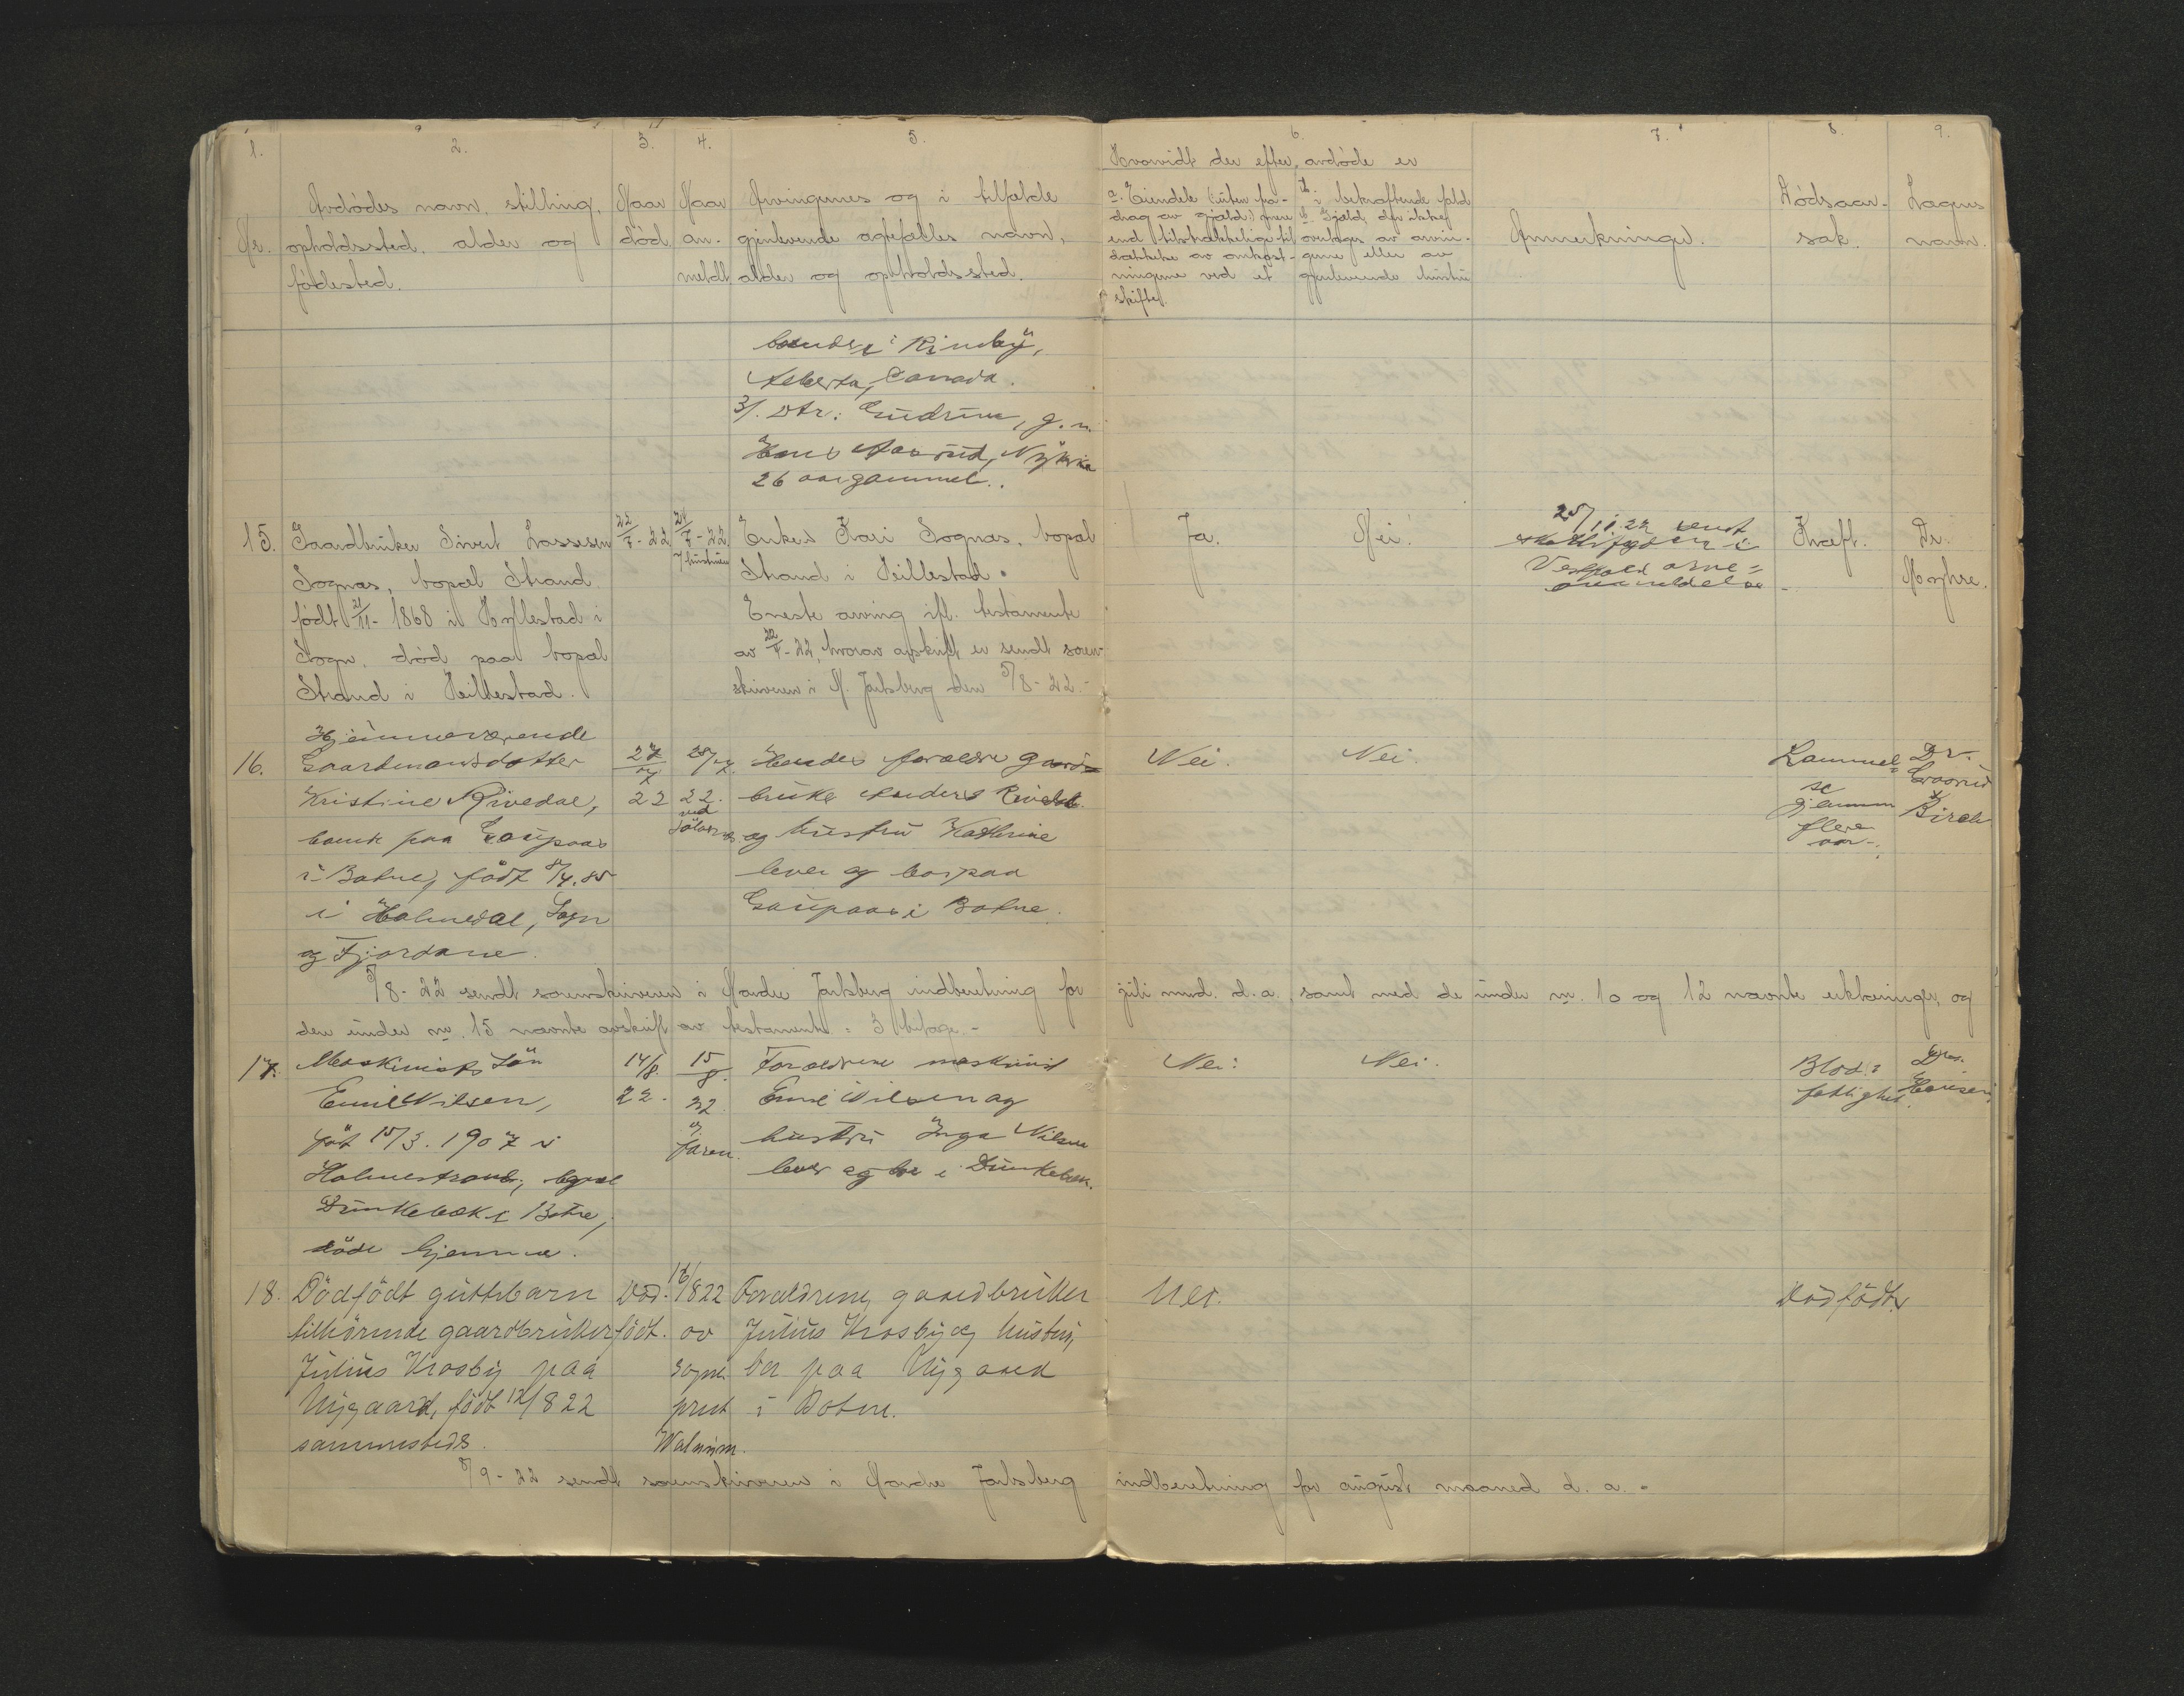 1.
2.
3.
4.
5.
6.
7.
8.
9.
Nr.
Avdödes navn, stilling,
opholdssted, alder og
födested.
Naar
död.
Naar
an-
meldt
Arvingernes og i tilfælde
gjenlevende egtefælles navn,
alder og opholdssted.
Hvorvidt der efter avdöde er
a. Eiendele (uten fra-
drag av gjæld) mere
end tilstrækkelige til
dækkelse av omkost-
ningerne ved et
skifte.
b. i bekræftende fald
Gjæld, der ikke
overtages av arvin-
gerne eller av
gjenlevende hustru
Anmerkninger.
Dödsaar-
sak.
Lægens
navn.
boende i Rimbÿ,
Alberta, Canada.
3/. Dtr. Gudrun, g. m.
Hans Aasrud, Nÿkirke
26 aar gammel.
15.
Gaardbruker Sivert Lassesen
Sognæs, bopæl Strand
födt 21/11- 1868 i Hyllestad i
Sogn, död paa bopæl
Strand i Hillestad.
22/7-22
24/7-22
av hustruen
Enken Kari Sognæs, bopæl
Strand i Hillestad.
Eneste arving ifl. testamente
av 22/4-22, hvorav avskrift er sendt soren-
skriveren i N. Jarlsberg den 5/8-22.-
Ja.
Nei.
25/10.22 sendt
skattefogden i
Vestfold arve=
anmeldelse
Kræft.
Dr.
Myhre.
16.
Hjemmeværende
Gaardmandsdatter
Kristine Rivedal,
boende paa Gaupaas
i Botne, födt 8/4.85
i Holmedal, Sogn
og Fjordane.
27/7
22
28/7.
22.
ved
Hendes forældre gaard=
bruker Anders Rivedal
og hustru Kathrine
lever og bor paa
Gaupaas i Botne.
Nei.
Nei.
Lammel=
se
gjennem
flere
aar.
Dr.
Graarud
&
Birch
5/8-22 sendt sorenskriveren i Nordre Jarlsberg indberetning for juli mnd. d. a., samt med de under nr. 10 og 12 nævnte erklæringer, og
den under nr. 15 nævnte avskrift av testamente = 3 bilage.-
17.
Maskinists sön
Emil Nilsen,
föt 15/3.1907 i
Holmestrand, bopæl
Dunkebæk i Botne,
döde hjemme.
14/8.
22.
15/8.
22
av
faren.
Forældrene maskinist
Emil Nilsen og
hustru Inga Nilsen
lever og bor i Dunkebæk.
Nei.
Nei.
Blod=
fattighet.
Dr.
Hansen
18.
Dödfödt guttebarn
tilhörende gaardbruker
Julius Krosbÿ paa
Nÿgaard, födt 12/8 22
sammesteds.
Död-
födt.
16/8 22
av
sogne
prest
Walnum.
Forældrene, gaardbruker
Julius Krosbÿ og hustru,
bor paa Nÿgaard
i Botne.
Nei.
Dödfödt
5/9-22 sendt sorenskriveren i Nordre Jarlsberg indberetning for august maaned d. a.-